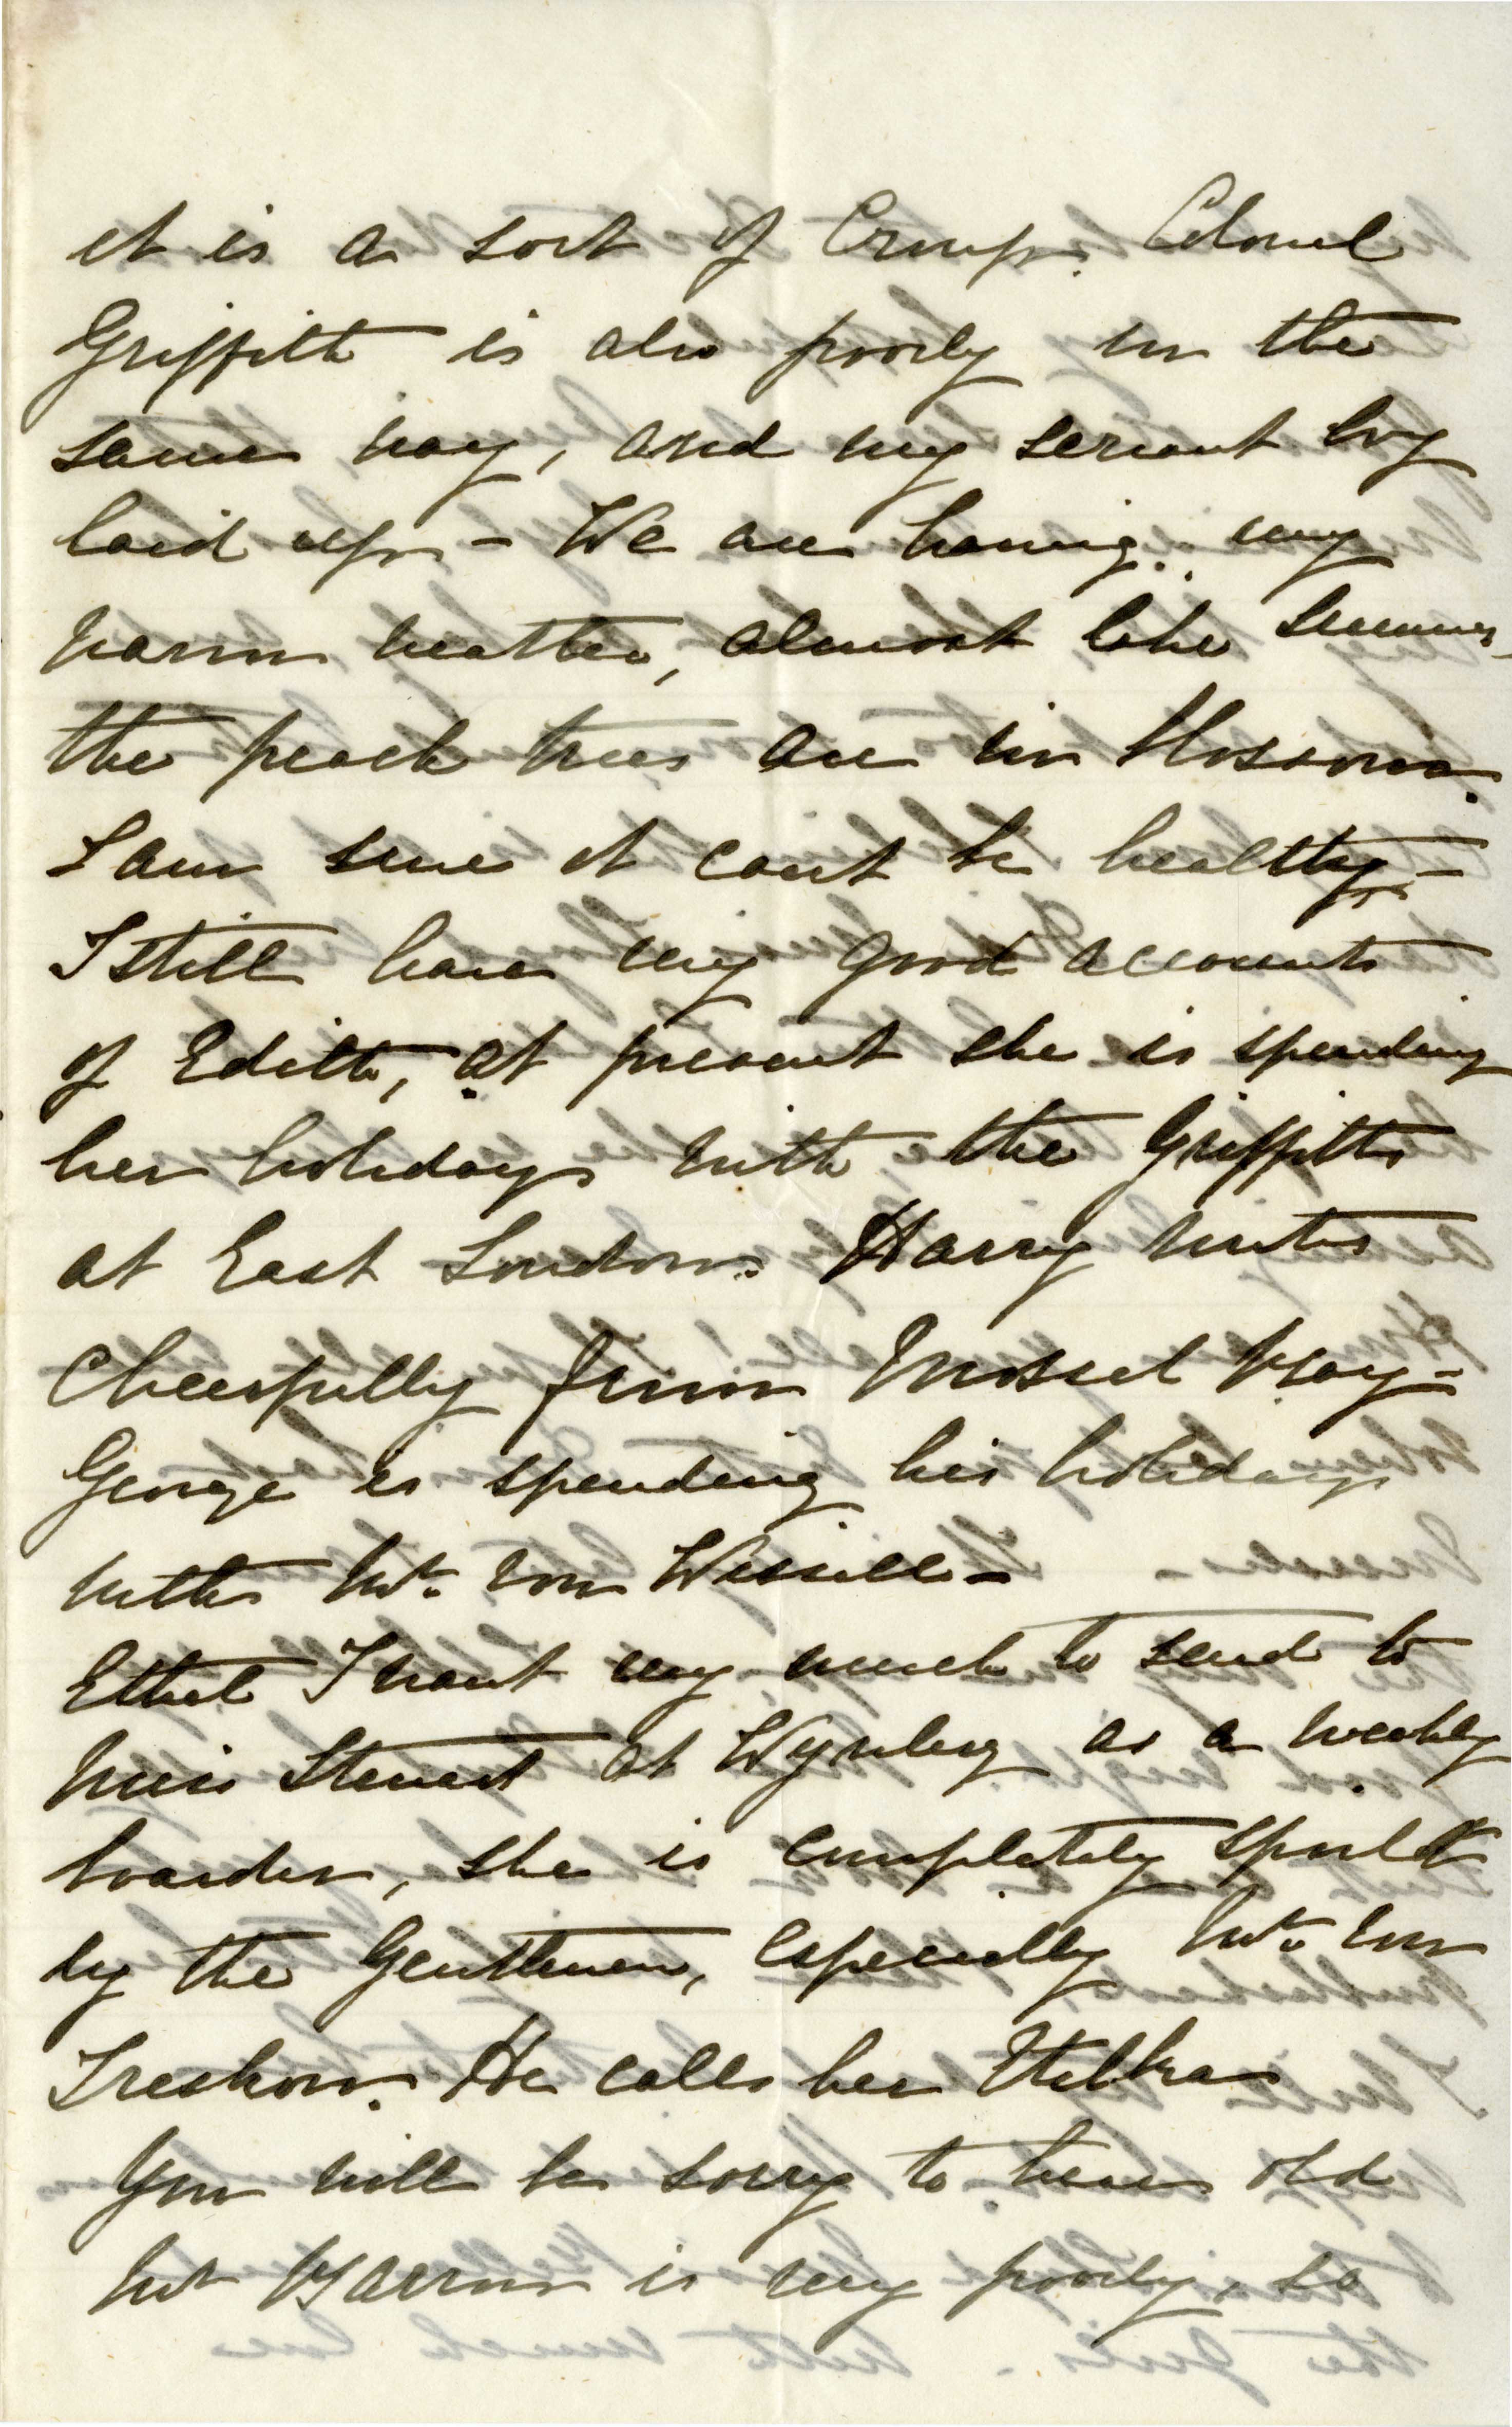 it is a sort of Croup. Colonel
Griffith is also poorly in the
same way, and my servant boy
laid up - We are having very
warm weather, almost like Summer -
the peach trees are in blossom.
I am sure it cant be healthy -
I still have very good accounts
of Edith, at present she is spending
her holidays with the Griffiths
at East London. Harry writes
Cheerfully from Mossel Bay -
George is spending his holidays
with Mr. von Wessell -
Ethel I want very much to send to
Miss Stewart at Wynberg as a weekly
boarder, she is completely spoilt
by the Gentlemen, especially Mr. von
Treskow. He calls her
You will be sorry to hear old
Mr Barron is very poorly, so